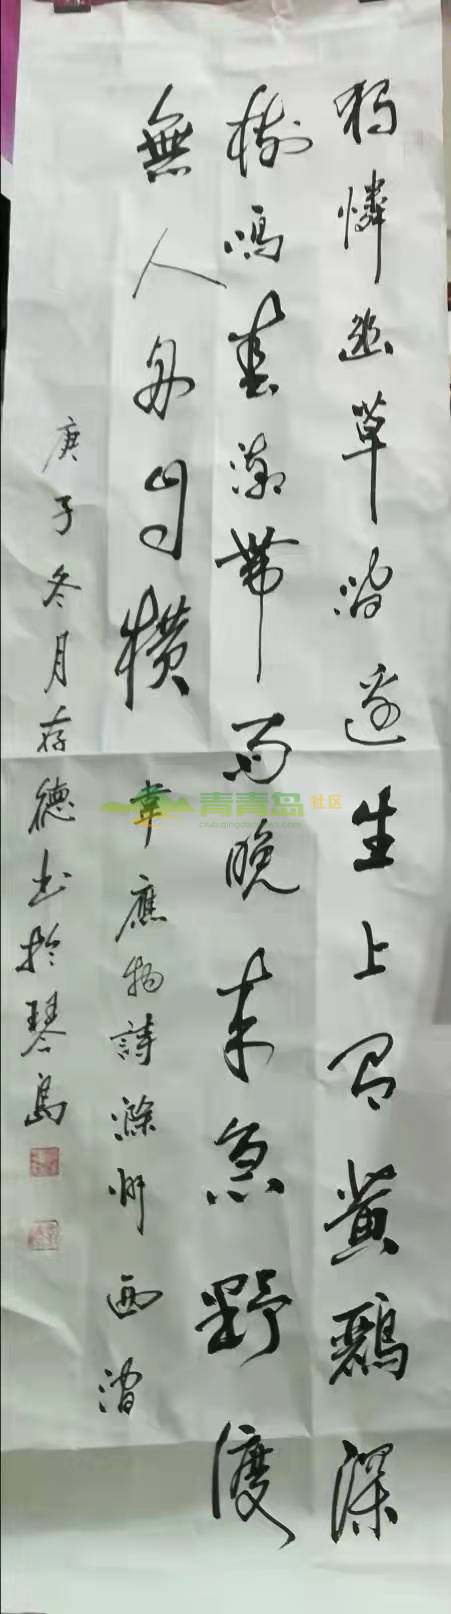 獨憐幽草澗邊生上有黃鸝深
樹鳴春潮帶雨晚來急野渡
無人舟自橫
韋應物詩滁州西澗
庚子冬月存德书於琴島
青青岛 社区
club.qingdaonews.com